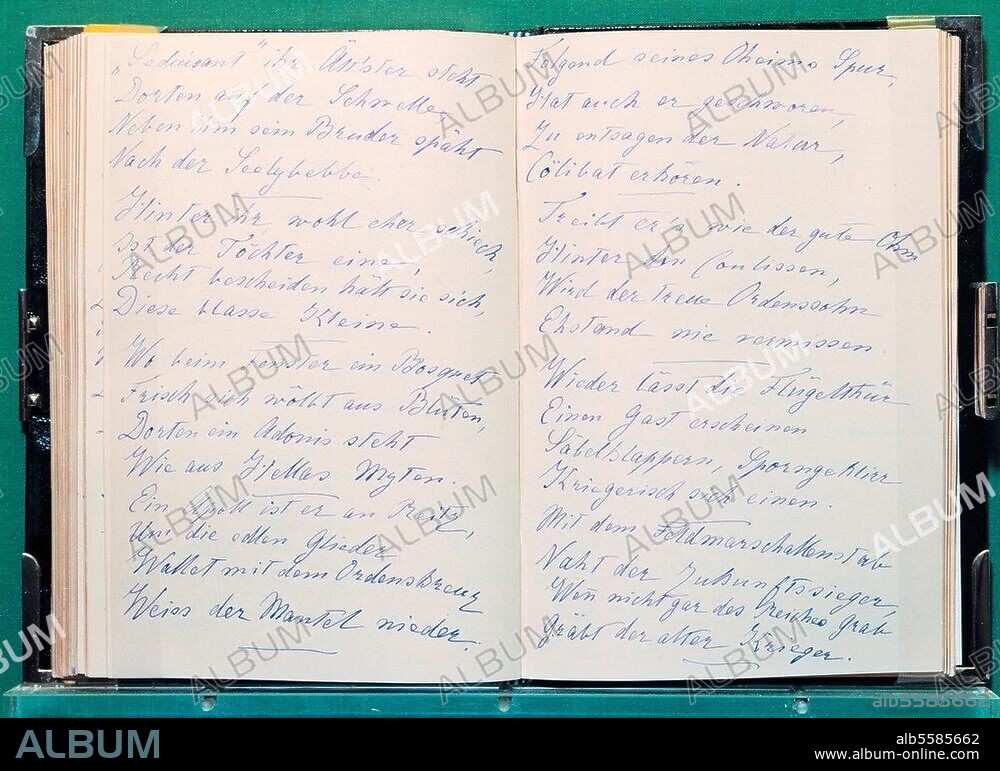 „Sodinsant" ihr Ält'ster steht
Dorten auf der Schwelle
Neben ihm sein Bruder späht
Nach der Seelybebbe.
Hinter ihr, wohl eher schiech,
Ist der Töchter eine,
Recht bescheiden hält sie sich,
Diese blasse Kleine.
Wo beim Fenster ein Bosquet
Frisch sich wölbt aus Blüten,
Dorten ein Adonis steht
Wie aus Hellas Myten.
Ein Gott ist er an Reitz,
Um die edlen Glieder
Wallet mit dem Ordenskreuz
Weiss der Mantel nieder.
Folgend seines Oheims Spur,
Hat auch er geschworen,
Zu entsagen der Natur,
Cölibat erkören.
Treibt er's wie der gute Ohm
Hinter den Coulissen,
Wird der treue Ordenssohn
Ehstand nie vermissen.
Wieder lässt die Flügelthür
Einen Gast erscheinen
Säbelklappern, Sporngeklirr
Kriegerisch sich einen.
Mit dem Feldmarschallenstab
Naht der Zukunftssieger,
Wen nicht gar des Reiches Grab
Gräbt der alter Krieger.
ALBUM
alb5585662
alb5585662
www.album-online.com